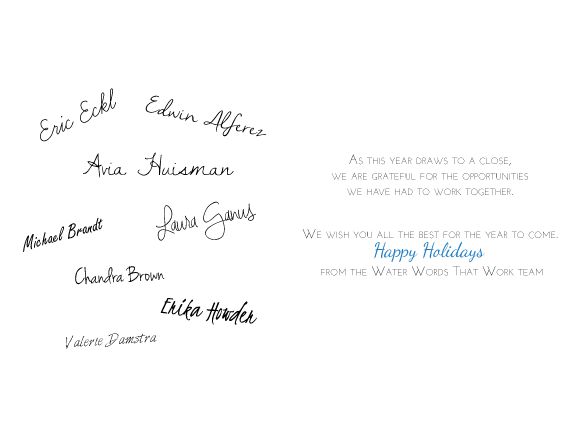 Eric Eckl
Edwin Alferez
Avia Huisman
Michael Brandt
Laura Ganus
Chandra Brown
Erika Howder
Valerie Damstra
As this year draws to a close,
we are grateful for the opportunities
we have had to work together.
We wish you all the best for the year to come.
Happy Holidays
from the Water Words That Work team